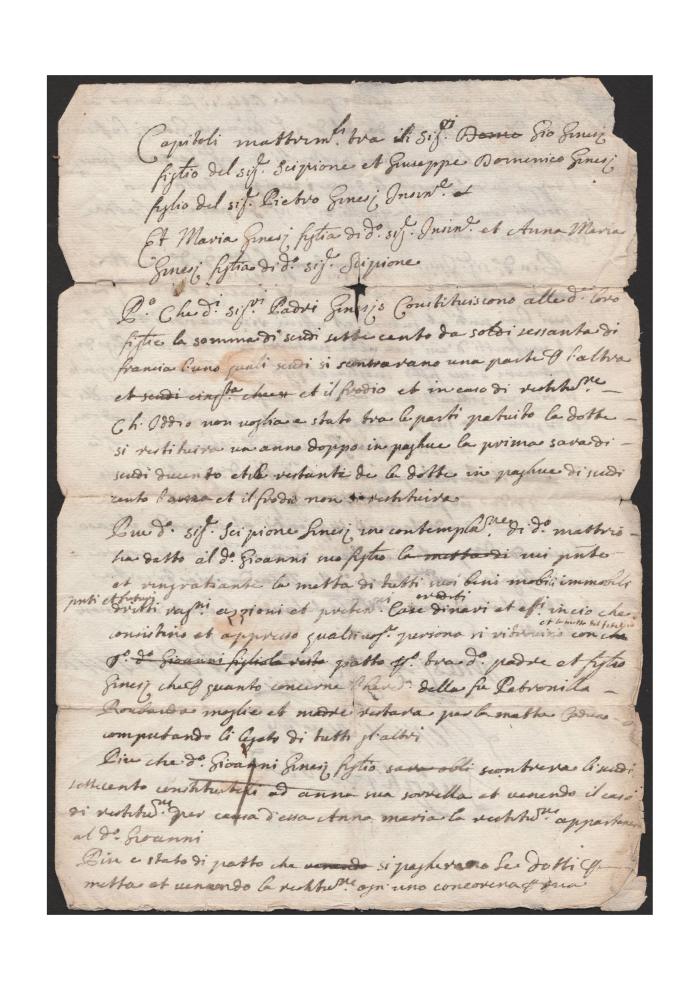 Capitoli mattrim.li tra di Sig.ri Dome Gio Ginesj
figlio del sig.r Scipione et Giuseppe Domenico Ginesj
figlio del sig.r Pietro Ginesj Insin.r et
Et Maria Ginesj figlia di d.o sig.r Insin.r et Anna Maria
Ginesj figlia di d.o sig.r Scipione
P.o Che d.i sig.ri Padri Ginesj Constituiscono alle d.e loro
figlie la somma di scudi sette cento da soldi sessanta di
francia l'uno quali scudi si scontrarano una parte per l'altra
et scudi et il frodio et in caso di restitu.ne
Ch. Iddio non voglia e stato tra le parti patuito la dotte
si restituira un anno doppo in paghue la prima sara di
scudi ducento et il restante de la dotte in paghue di scudi
cento l'una et il frodio non restituira
Piu d.o sig.r Scipione Ginesj in contempla.ne di d.o mattrio
ha datto al d.o Gioanni suo figlio la metta di ivi pnte
et ringratiante la metta di tutti suoi beni mobili immobili
pnti et futuri crediti
dritti rag.ni azzioni et preten.ni Case dinari et eff.i in cio che
et la metta del
consistino et appresso qualsivog.a persona si ritrovino con che
d.o Gioanni figlio la resta patto tra d.o padre et figlio
Ginesj che per quanto concerne della fu Petronilla
moglie et madre restara per la metta
computando li legati di tutti gl'altri
Piu che d.o Gioanni Ginesj figlio sara obli scontrera li scudi
settecento constituiti ad anna sua sorrella et venendo il caso
di restitu.ne per causa d'essa Anna maria la restitu.ne appartenera
al d.o Gioanni
Piu e stato di patto che venendo si pagherano le dotti per
metta et venendo la restitu.ne ogni uno concorrera per sua